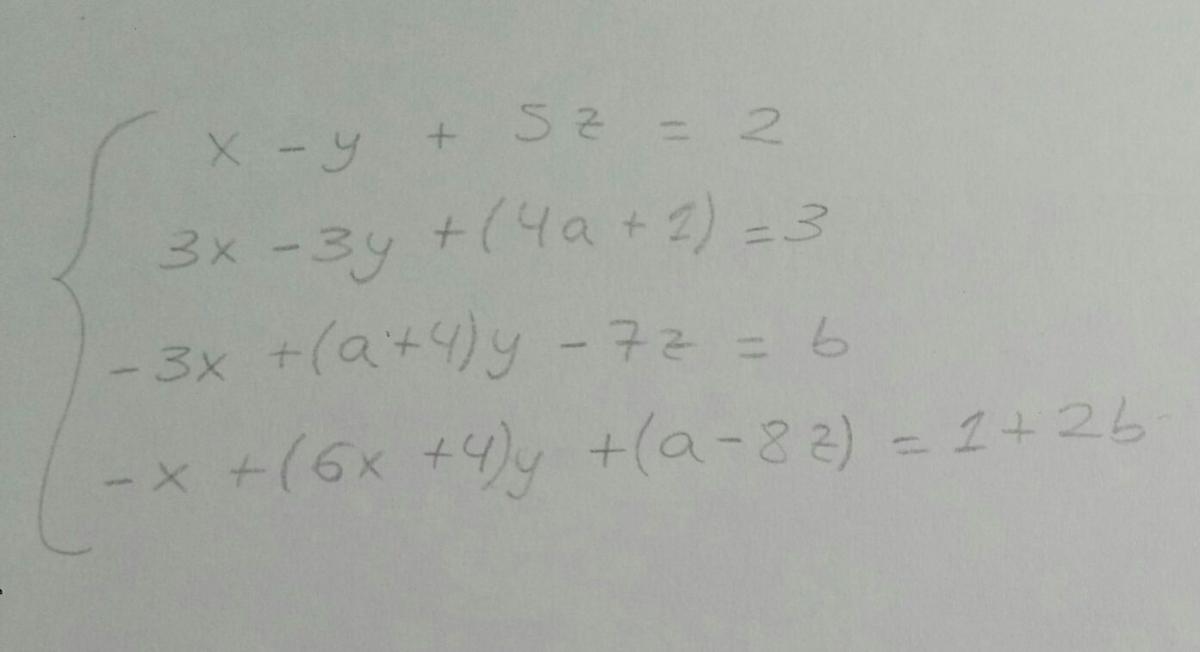 x - y + 5z = 2
3x - 3y + (4a + 1) = 3
-3x + (a+4)y - 7z = b
-x + (6x + 4)y + (a - 8z) = 1 + 2b